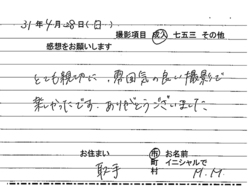 31年4月28日(日)
撮影項目 成人 七五三 その他
感想をお願いします
とても親切に、雰囲気の良い撮影で
楽しかったです。ありがとうございました
お住まい 市 お名前
町 イニシャルで
取手 村 M.M.